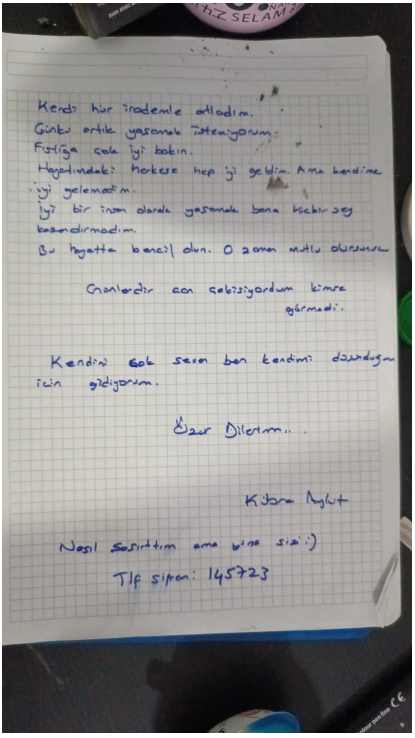 SELAM
Kendi hür irademle atladım.
Çünkü artık yaşamak istemiyorum.
Fıstığa çok iyi bakın.
Hayatımdaki herkese hep iyi geldim. Ama kendime
iyi gelemedim.
İyi bir insan olarak yaşamak bana hiçbir şey
kazandırmadım.
Bu hayatta bencil olun. O zaman mutlu olursunuz
Günlerdir can çekişiyordum kimse
görmedi.
Kendini çok seven ben kendimi düşündüğüm
için gidiyorum.
Özür Dilerim...
Kübra Aykut
Nasıl şaşırttım ama yine sizi :)
Tlf şifrem: 145723
CE